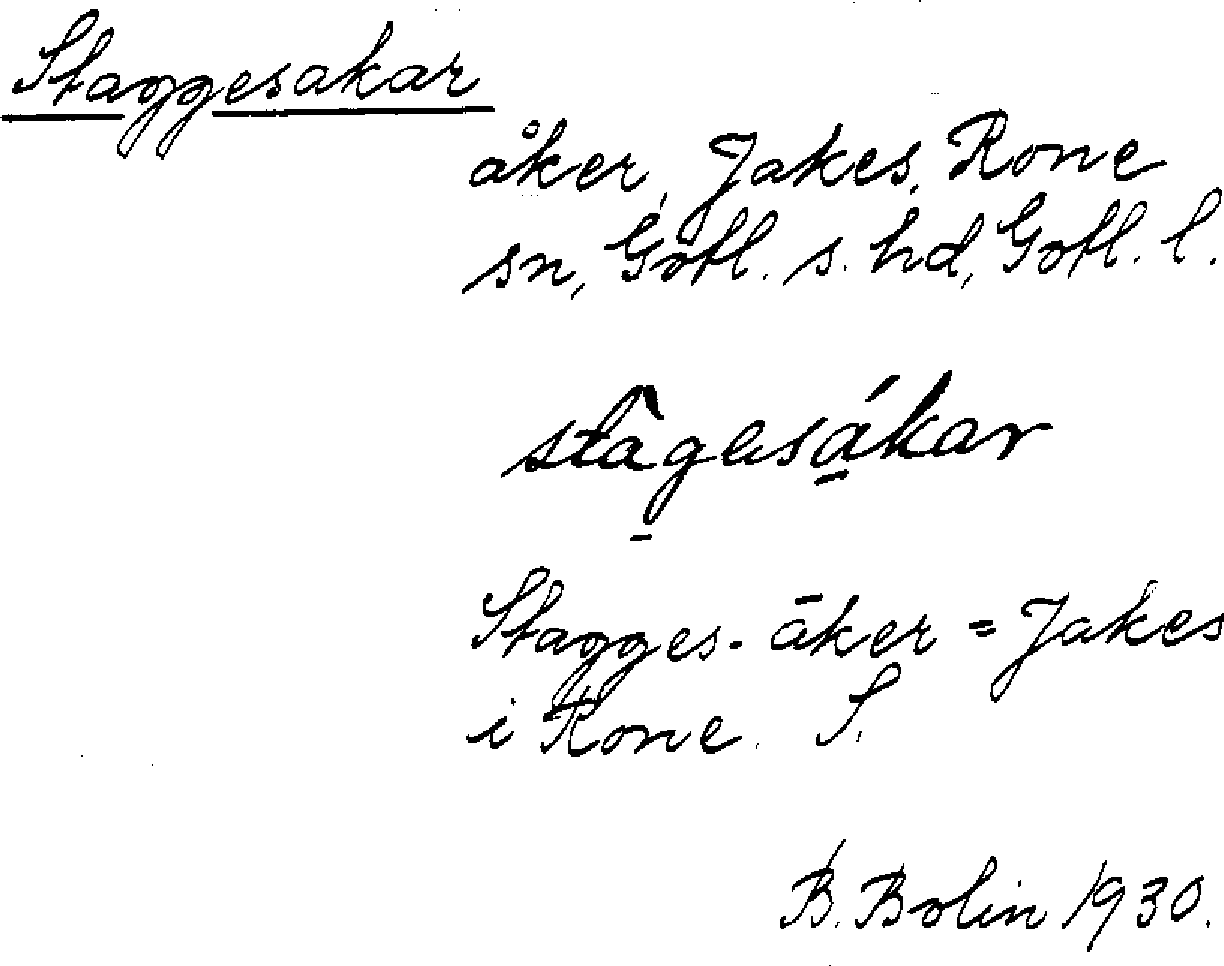 Staggesakar
åker, Jakes, Rone
sn, Gotl. s. hd, Gotl. l.
stàgesákar
Stagges-åker = Jakes
i Rone. S.
B. Bolin 1930.